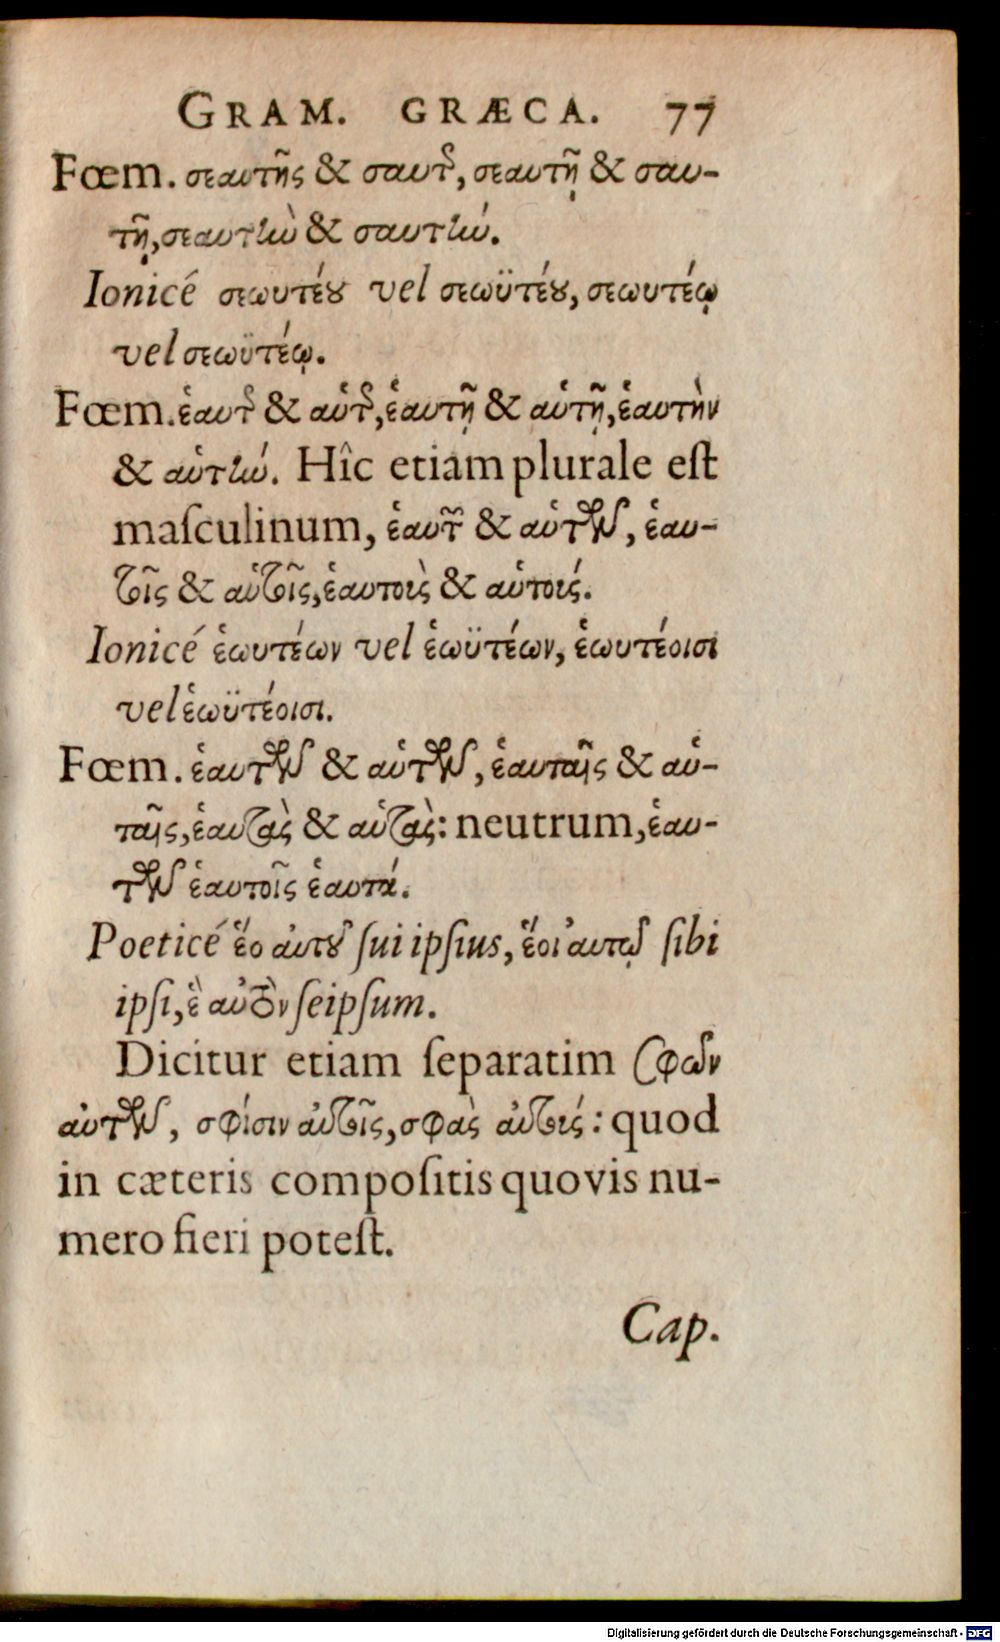 GRAM. GRÆCA. 77
Fœm. σεαυτῆς & σαυτῆς, σεαυτῇ & σαυ-
τῇ, σεαυτὴν & σαυτήν.
Ionicé σεωυτέου vel σεωϋτέου, σεωυτέῳ
vel σεωϋτέῳ.
Fœm. ἑαυτῆς & αὑτῆς, ἑαυτῇ & αὑτῇ, ἑαυτὴν
& αὑτήν. Hîc etiam plurale eſt
maſculinum, ἑαυτῶν & αὑτῶν, ἑαυ-
τοῖς & αὑτοῖς, ἑαυτοὺς & αὑτούς.
Ionicé ἑωυτέων vel ἑωϋτέων, ἑωυτέοισι
vel ἑωϋτέοισι.
Fœm. ἑαυτῶν & αὑτῶν, ἑαυταῖς & αὑ-
ταῖς, ἑαυτὰς & αὑτὰς: neutrum, ἑαυ-
τῶν ἑαυτοῖς ἑαυτά.
Poeticé ἕο αὐτοῦ ſui ipſius, ἕοι αὐτῷ ſibi
ipſi, ἓ αὐτὸν ſeipſum.
Dicitur etiam ſeparatim σφῶν
αὐτῶν, σφίσιν αὐτοῖς, σφὰς αὐτούς: quod
in cæteris compoſitis quovis nu-
mero fieri poteſt.
Cap.
Digitalisierung gefördert durch die Deutsche Forschungsgemeinschaft - DFG